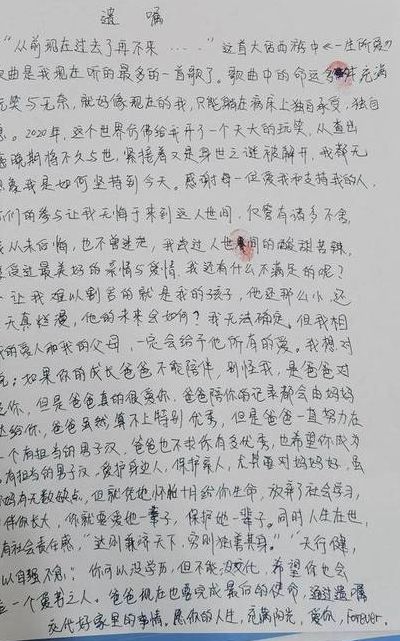 遗嘱
“从前现在过去了再不来……”这首大话西游中《一生所爱》
歌曲是我现在听的最多的一首歌了。歌曲中的命运 充满
玩笑与无奈，就好像现在的我，只能躺在病床上独自承受，独自
。2020年，这个世界仿佛给我开了一个天大的玩笑，从查出
癌晚期将不久与世，紧接着又是身世之谜被解开，我都无
我是如何坚持到今天。感谢每一位爱我和支持我的人，
你们的参与让我无悔于来到这人世间，仅管有诸多不舍，
我从未后悔，也不曾迷茫，我尝过人世间的酸甜苦辣，
享受过最美好的亲情与爱情，我还有什么不满足的呢？
一让我难以割舍的就是我的孩子，他还那么小，还
天真烂漫，他的未来会如何？我无法确定。但我相
我的爱人和我的父母，一定会给予他所有的爱。我想对
说：如果你的成长爸爸不能陪伴，别怪我，是爸爸对
起你，但是爸爸真的很爱你，爸爸陪你的记录都会由妈妈
达给你，爸爸虽然算不上特别优秀，但是爸爸一直努力在
一个有担当的男子汉，爸爸也不求你有多优秀，也希望你成为
有担当的男子汉，爱护身边人，保护亲人，尤其要对妈妈好，虽
妈妈有无数缺点，但就凭她怀胎十月给你生命，放弃了社会学习，
伴你长大，你就要爱她一辈子，保护她一辈子。同时人生在世，
有社会责任感，“达则兼济天下，穷则独善其身。”“天行健，
以自强不息”；你可以没学历，但不能没文化，希望你也会
一个爱书之人。爸爸现在也要完成最后的使命，通过遗嘱
交代好家里的事情。愿你的人生，充满阳光，爱你，Forever.